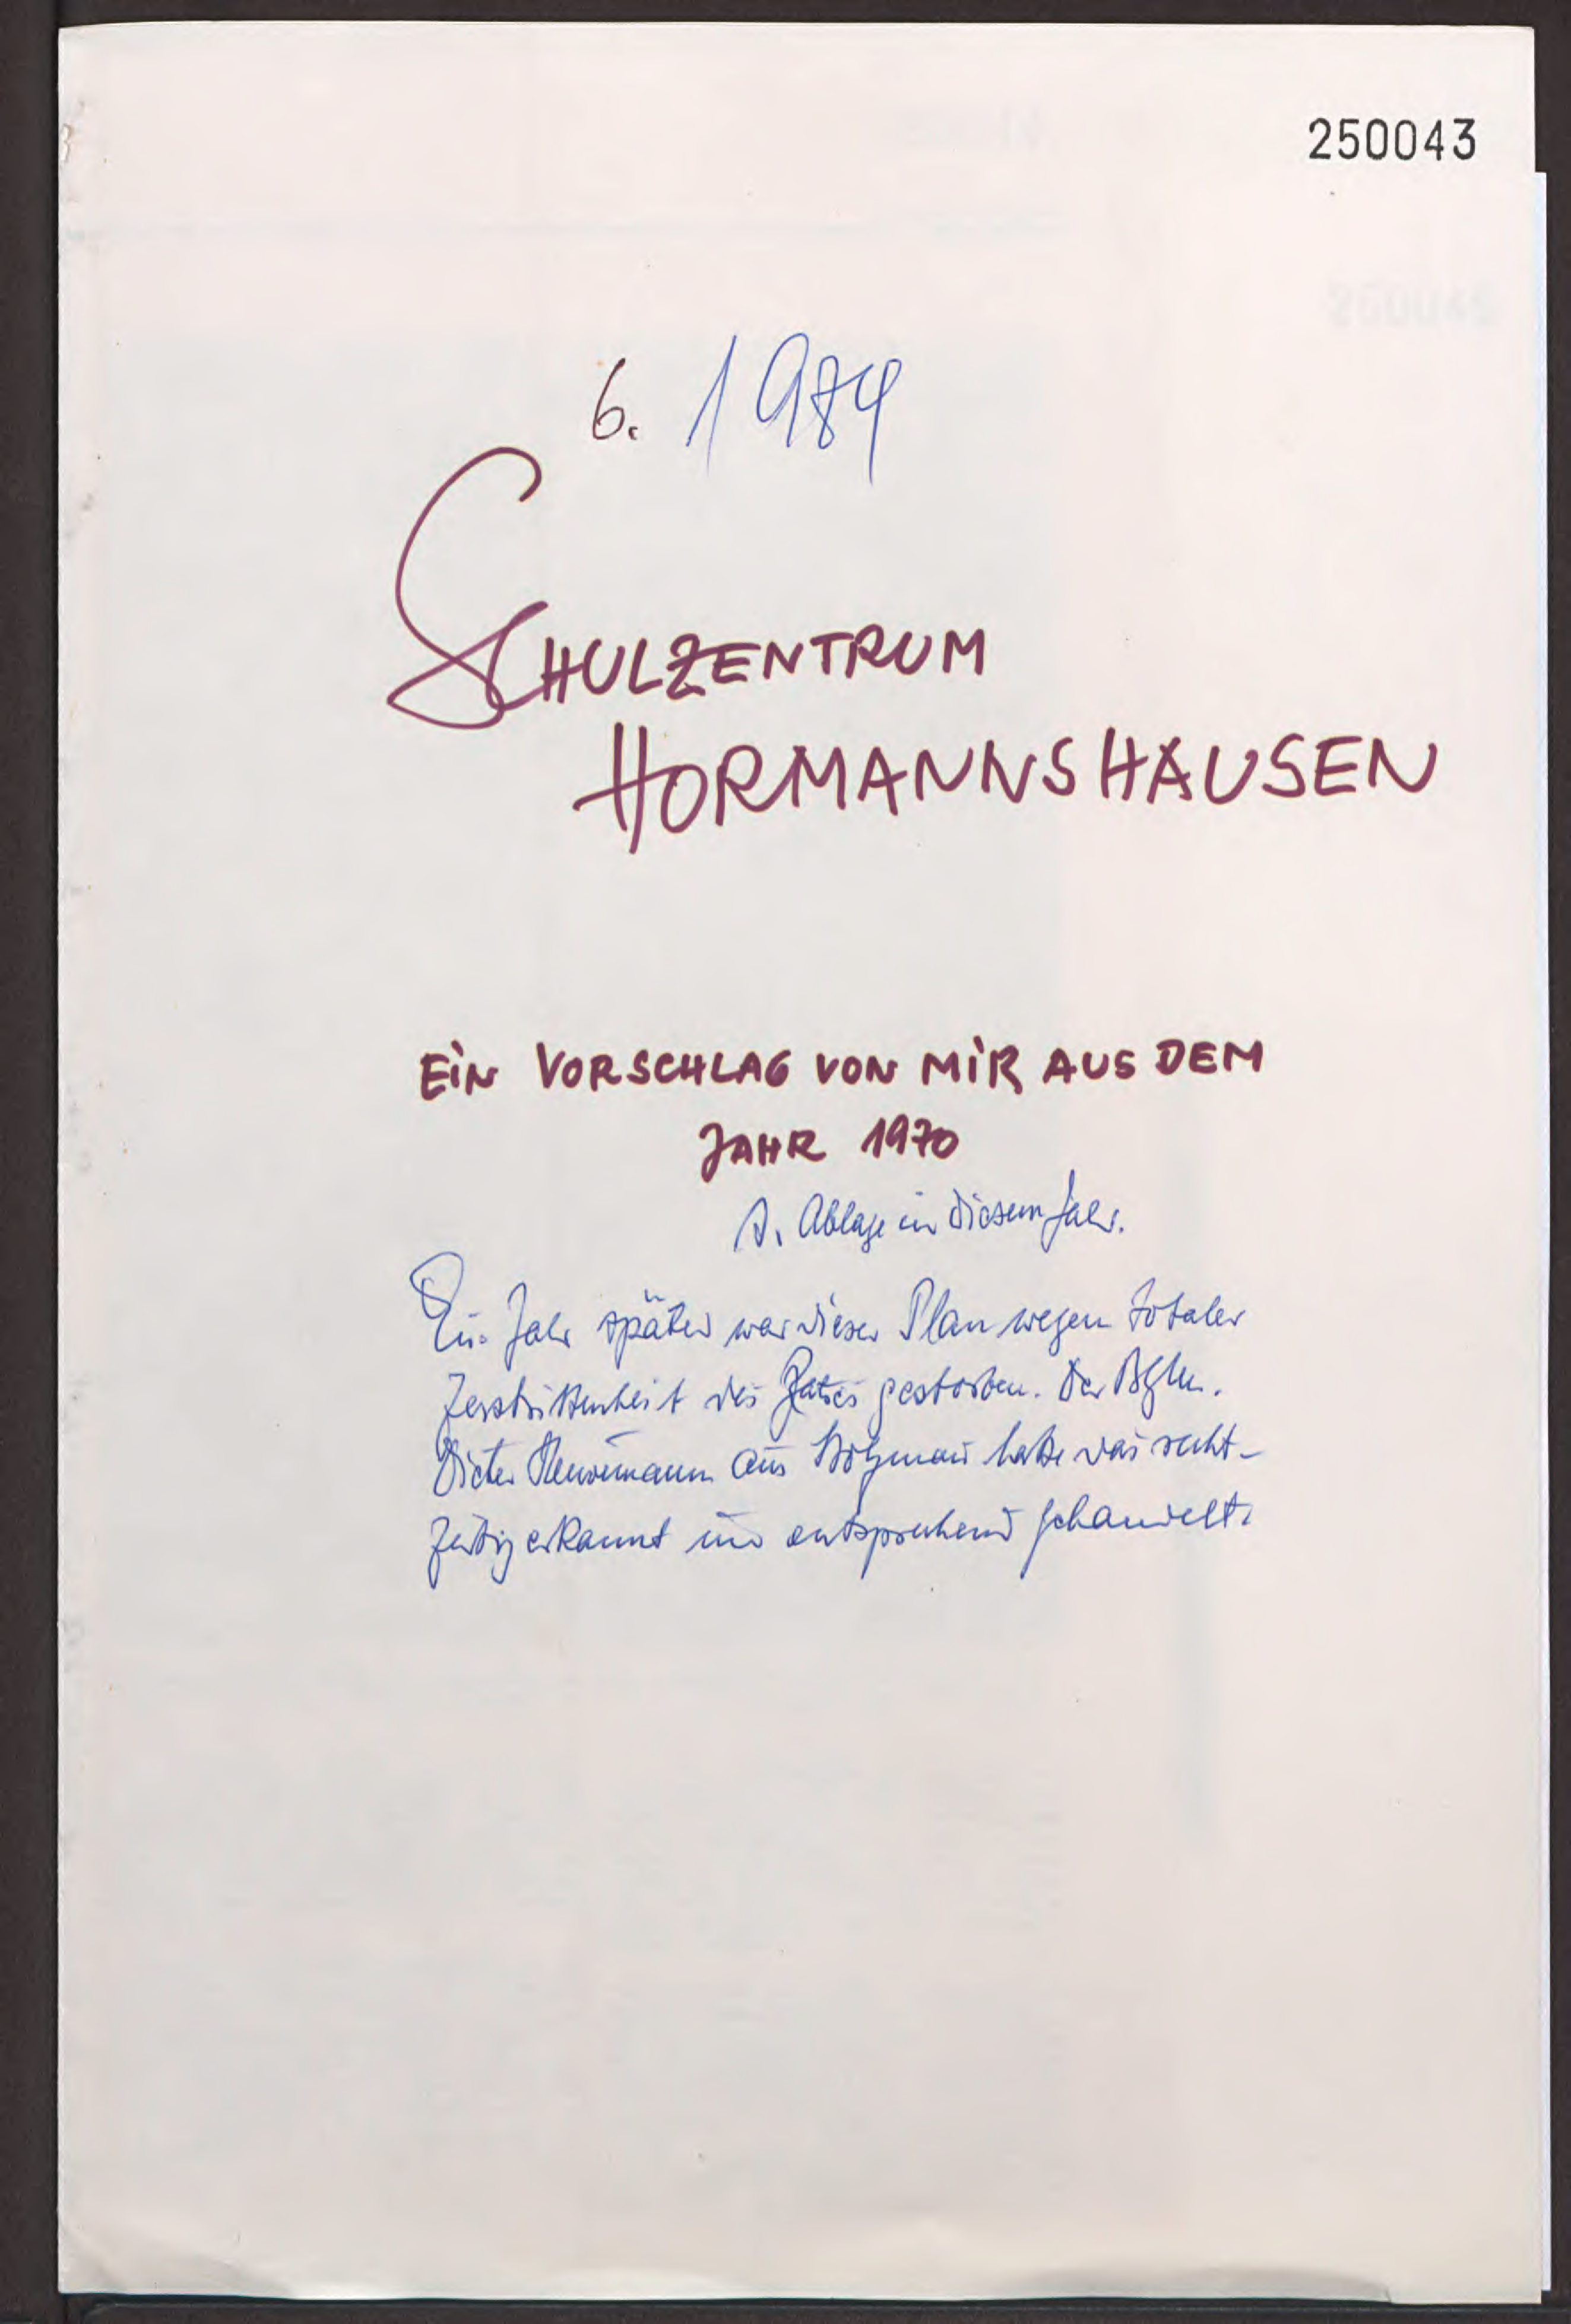 250043
6. 1984
SCHULZENTRUM
HORMANNSHAUSEN
EIN VORSCHLAG VON MIR AUS DEM
JAHR 1970
s. Ablage in diesem Jahr.
Ein Jahr später war dieser Plan wegen totaler
Zerstrittenheit des Rates gestorben. Der Bgm.
Dieter aus hatte das recht-
zeitig erkannt und entsprechend gehandelt.